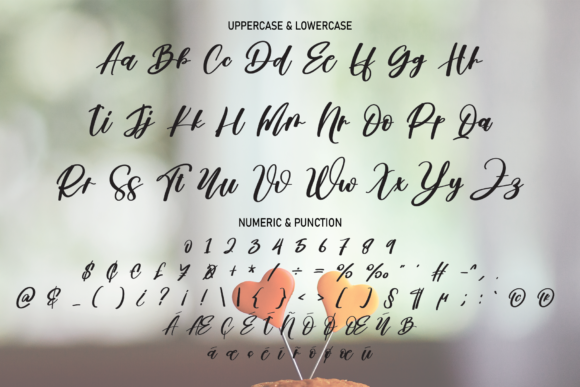 UPPERCASE & LOWERCASE
Aa Bb Cc Dd Ee Ff Gg Hh
Ii Jj Kk Ll Mm Nn Oo Pp Qq
Rr Ss Tt Uu Vv Ww Xx Yy Zz
NUMERIC & PUNCTION
0 1 2 3 4 5 6 7 8 9
$ ₵ € £ ¥ + * / ÷ = % ‰ " ' # - ^ , .
@ & _ ( ) ¿ ? ¡ ! \ | { } < > [ ] § ¶ µ ; : ` © ®
Á Æ Ç É Í Ñ Ó Ø Œ Ú
á æ ç é í ñ ó ø œ ú